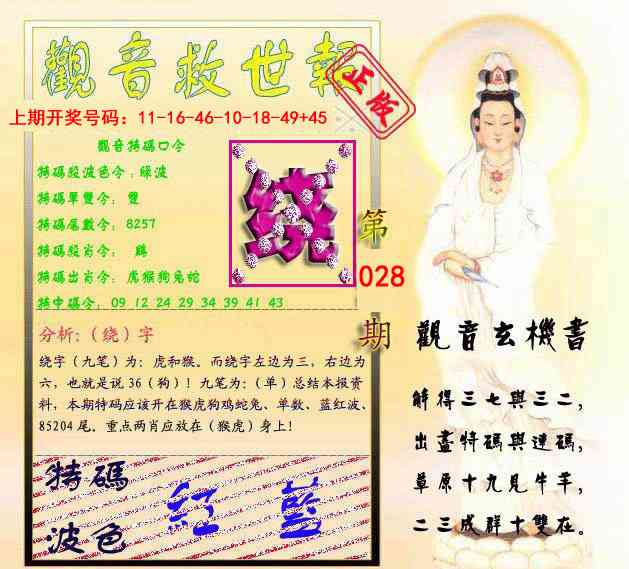 觀音救世報
正版
上期开奖号码：11-16-46-10-18-49+45
觀音特碼口令
特碼殺波色令：綠波
特碼單雙令： 雙
特碼尾數令：8257
特碼殺肖令： 鷄
特碼出肖令：虎猴狗兔蛇
特中碼令：09 12 24 29 34 39 41 43
绕
第
028
期
分析：（绕）字
绕字（九笔）为：虎和猴。而绕字左边为三，右边为
六，也就是说 36（狗）！九笔为：（单）总结本报资
料，本期特码应该开在猴虎狗鸡蛇兔、单数、蓝红波、
85204 尾。重点两肖应放在（猴虎）身上！
特碼
波色
紅 藍
觀音玄機書
解得三七與三二，
出盡特碼與連碼，
草原十九見牛羊，
二三成群十雙在。